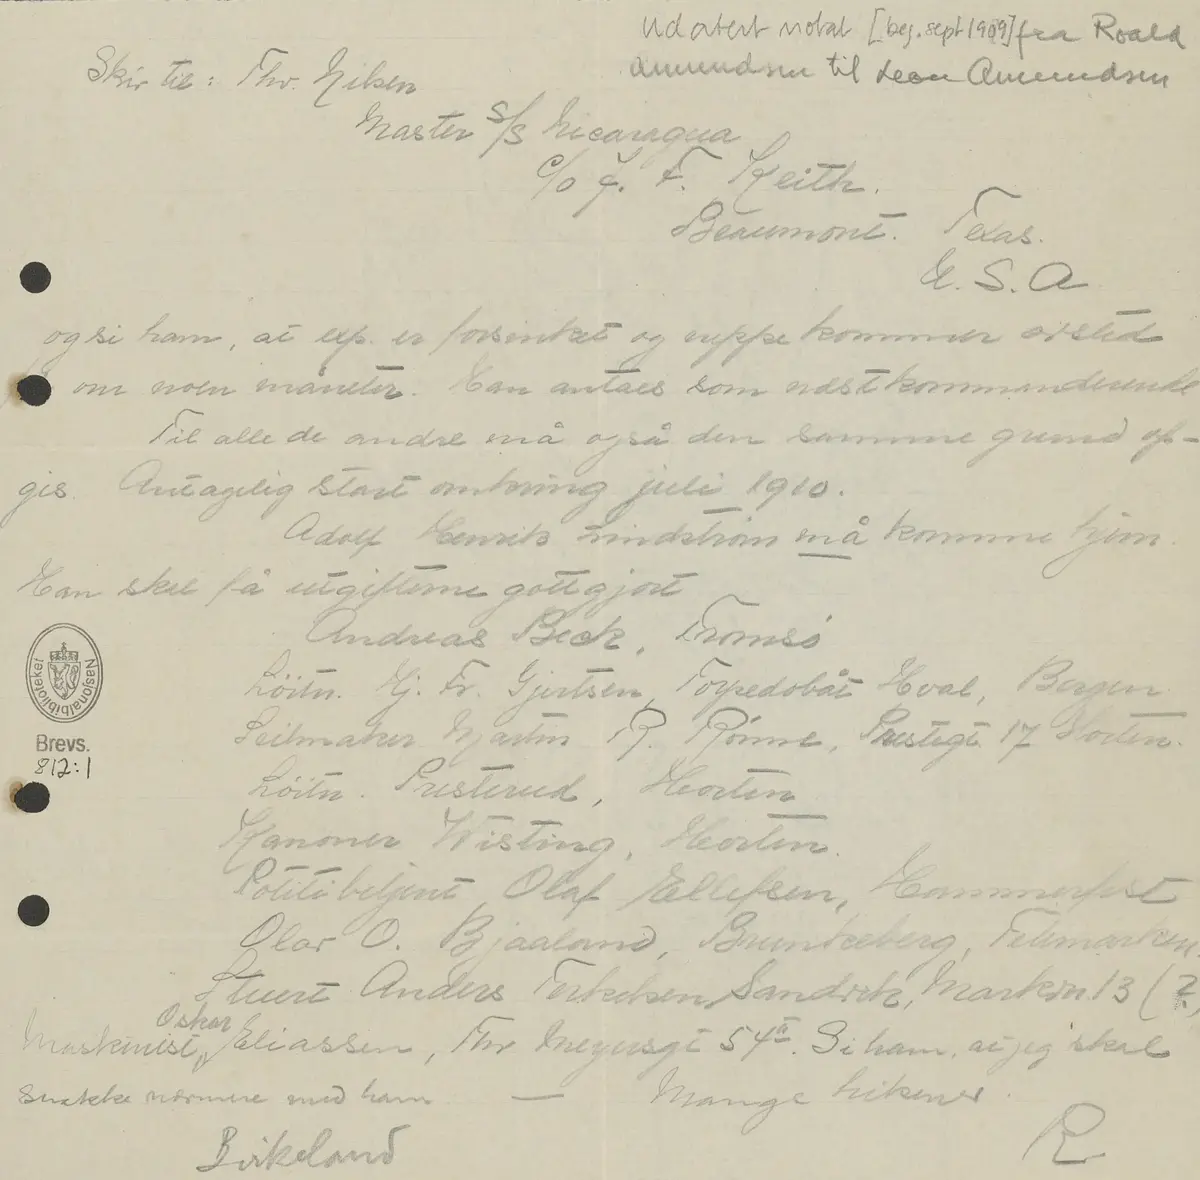 Udatert notat [beg. sept 1909] fra Roald
Amundsen til Leon Amundsen
Skriv til: Thv. Nilsen
Master S/S Nicaragua
c/o J. F. Keith.
Beaumont. Texas.
U. S. A
og si ham, at exp. er forsinket og neppe kommer avsted
om noen måneter. Han antaes som næstkommanderende
Til alle de andre må også den samme grund op-
gis. Antagelig start omkring juli 1910.
Adolf Henrik Lindstrøm må komme hjem.
Han skal få utgifterne gottgjort
Andreas Beck, Tromsø
Löitn. Hj. Fr. Gjertsen, Torpedobåt Hval, Bergen
Seilmaker Martin R. Rönne, Prestegt. 17 Horten.
Löitn. Presterud, Horten
Kanoner Wisting, Horten.
Politibetjent Olaf Ellefsen, Hammerfest
Olav O. Bjaaland, Brunkeberg, Telemarken.
Stuert Anders Terkelsen, Sandvik, Markvn 13 (?)
Maskinist, Oskar Eliassen, Thv Meyersgt 54II. Si ham, at jeg skal
snakke nærmere med ham — Mange hilsener.
R
Birkeland
Nasjonalbiblioteket
Brevs.
812:1